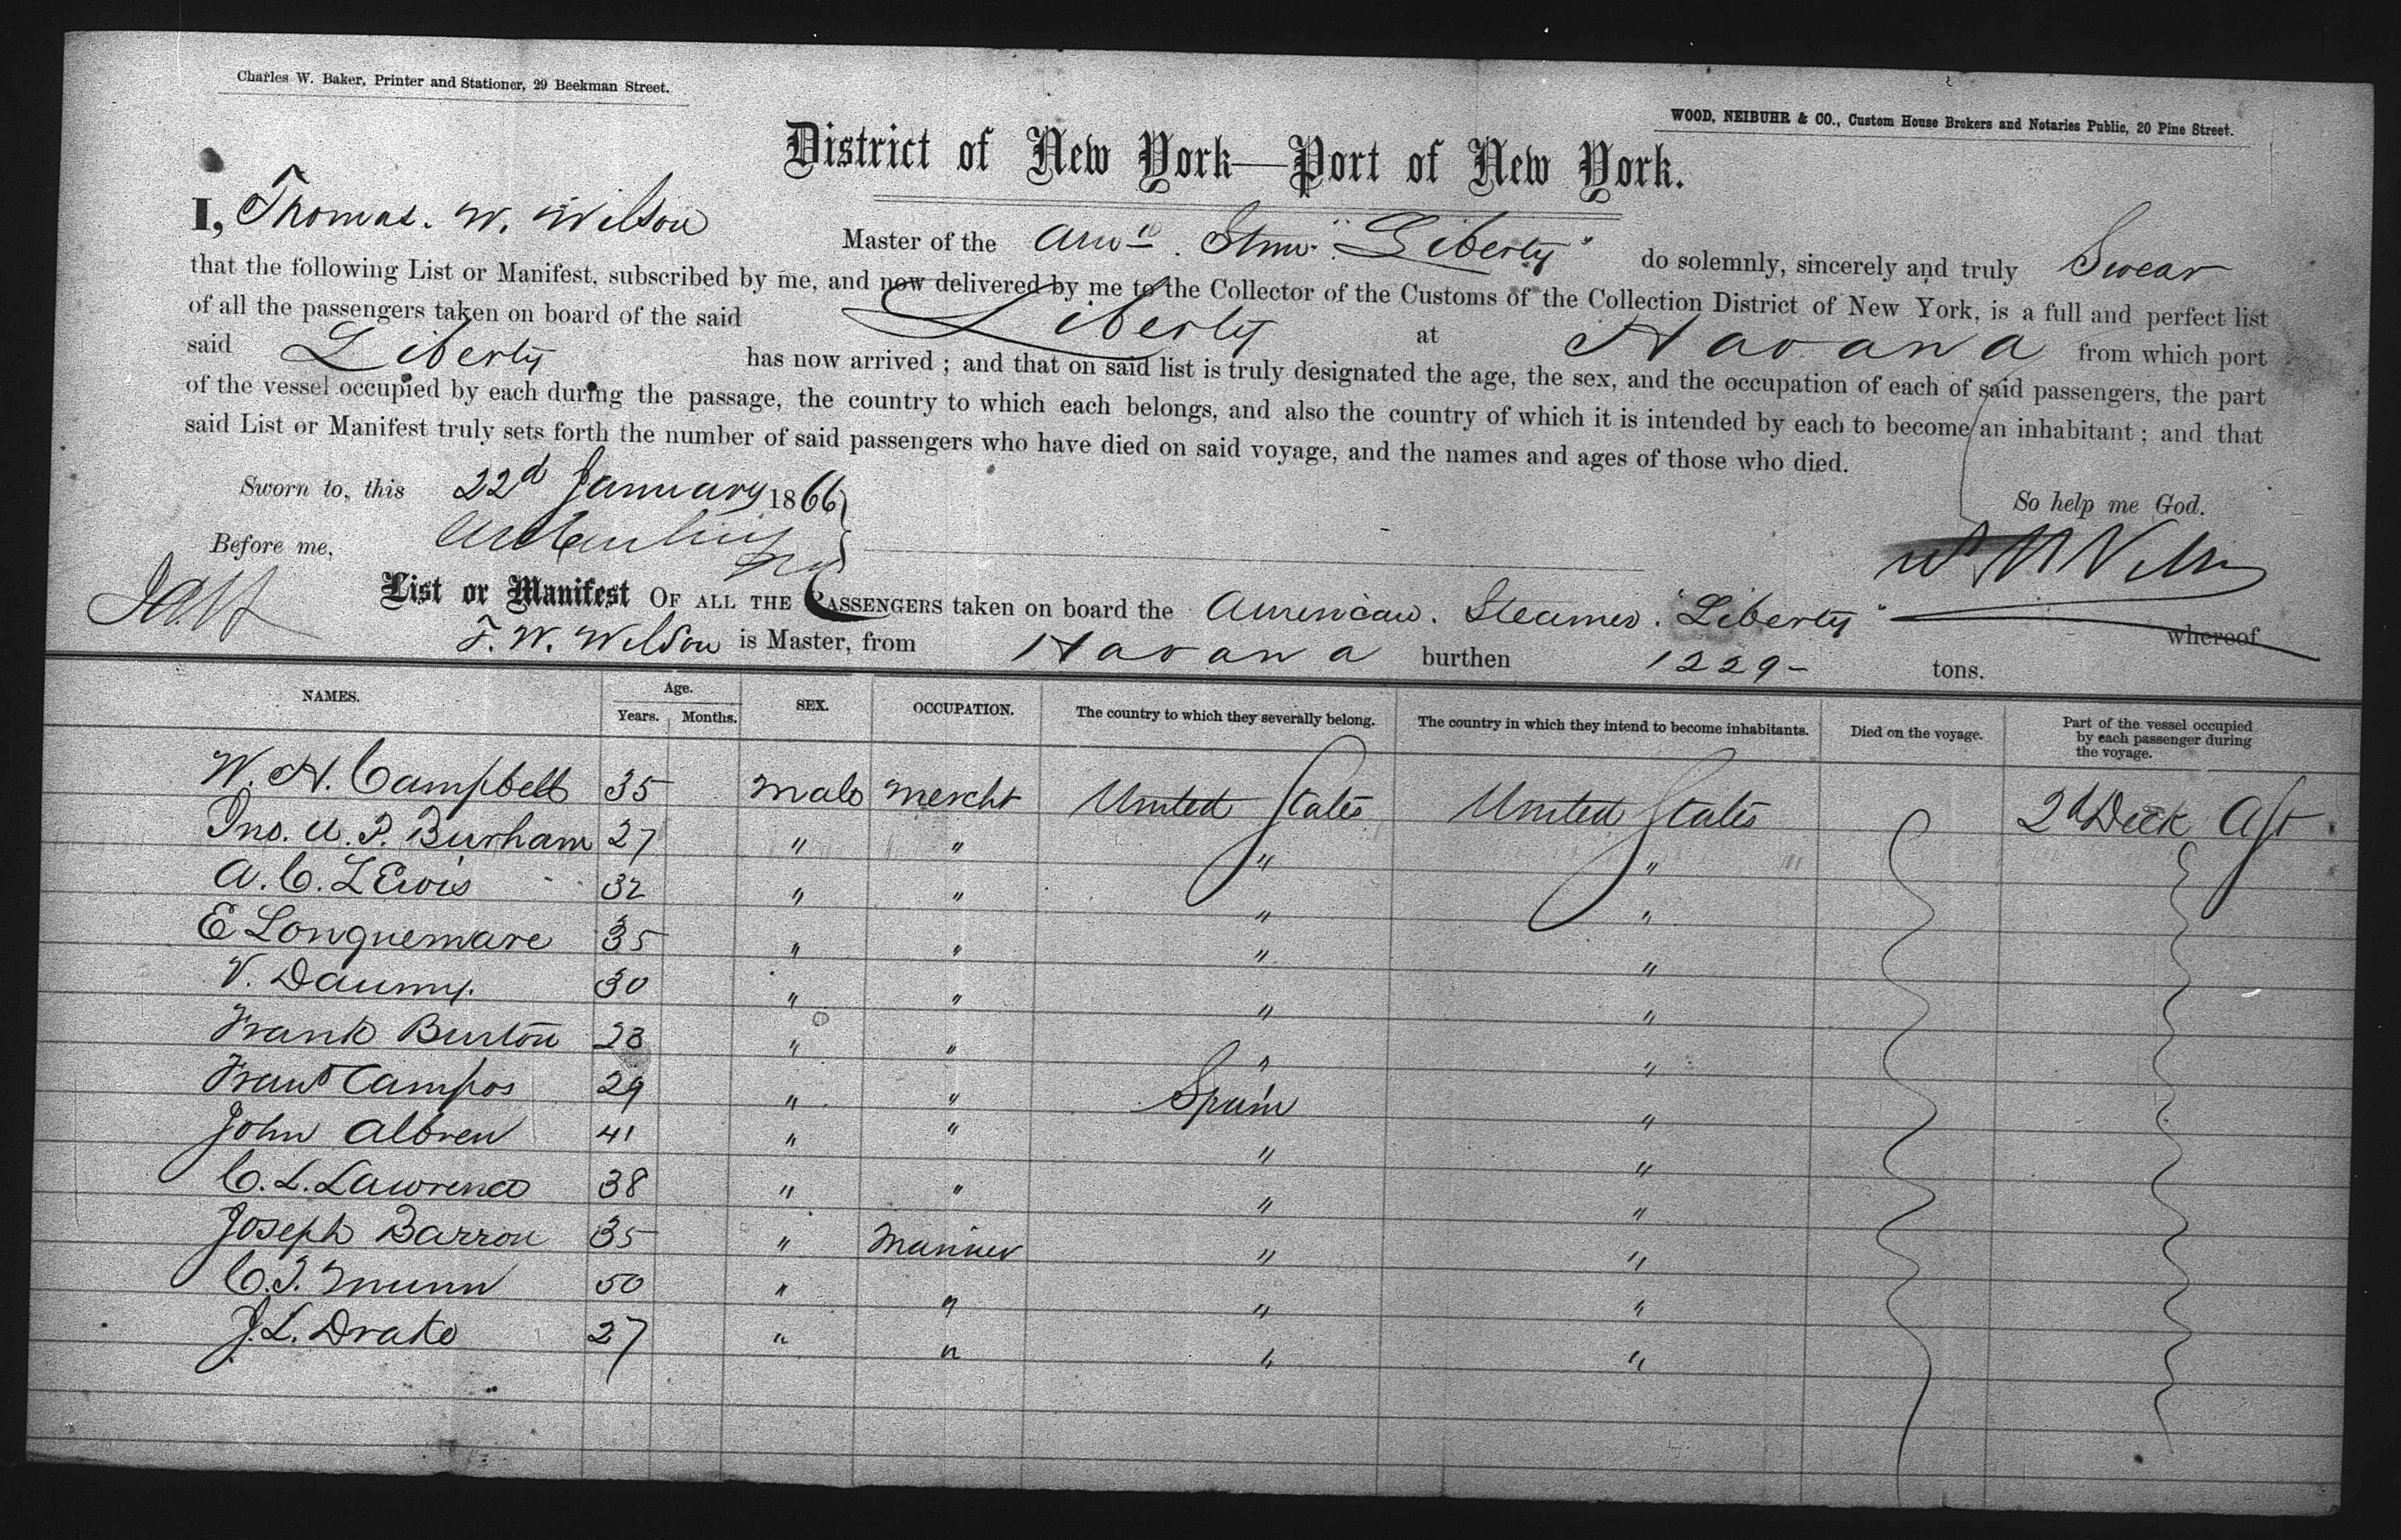 Charles W. Baker, Printer and Stationer, 29 Beekman Street.
WOOD, NEIBUHR & CO., Custom House Brokers and Notaries Public, 20 Pine Street.
District of New York—Port of New York.
I, Thomas. W. Wilson Master of the Amn. Stmr. "Liberty" do solemnly, sincerely and truly Swear
that the following List or Manifest, subscribed by me, and now delivered by me to the Collector of the Customs of the Collection District of New York, is a full and perfect list
of all the passengers taken on board of the said Liberty at Havana from which port
said Liberty has now arrived; and that on said list is truly designated the age, the sex, and the occupation of each of said passengers, the part
of the vessel occupied by each during the passage, the country to which each belongs, and also the country of which it is intended by each to become an inhabitant; and that
said List or Manifest truly sets forth the number of said passengers who have died on said voyage, and the names and ages of those who died.
Sworn to, this 22d January 1866 So help me God.
Before me,
List or Manifest OF ALL THE PASSENGERS taken on board the American. Steamer. "Liberty" whereof
T. W. Wilson is Master, from Havana burthen 1229- tons.
NAMES. Age. Years. Months. SEX. OCCUPATION. The country to which they severally belong. The country in which they intend to become inhabitants. Died on the voyage. Part of the vessel occupied by each passenger during the voyage.
W. H. Campbell 35 Male Mercht United States United States 2d Deck Aft
Jno. A. P. Burham 27 " " " "
A. C. LEwis 32 " " " "
E Longuemare 35 " " " "
V. Daumy. 30 " " " "
Frank Burton 28 " " " "
Frank Campos 29 " " Spain "
John Albren 41 " " " "
C. L. Lawrence 38 " " " "
Joseph Barron 35 " Mariner " "
C. J. Munn 50 " " " "
J. L. Drake 27 " " " "